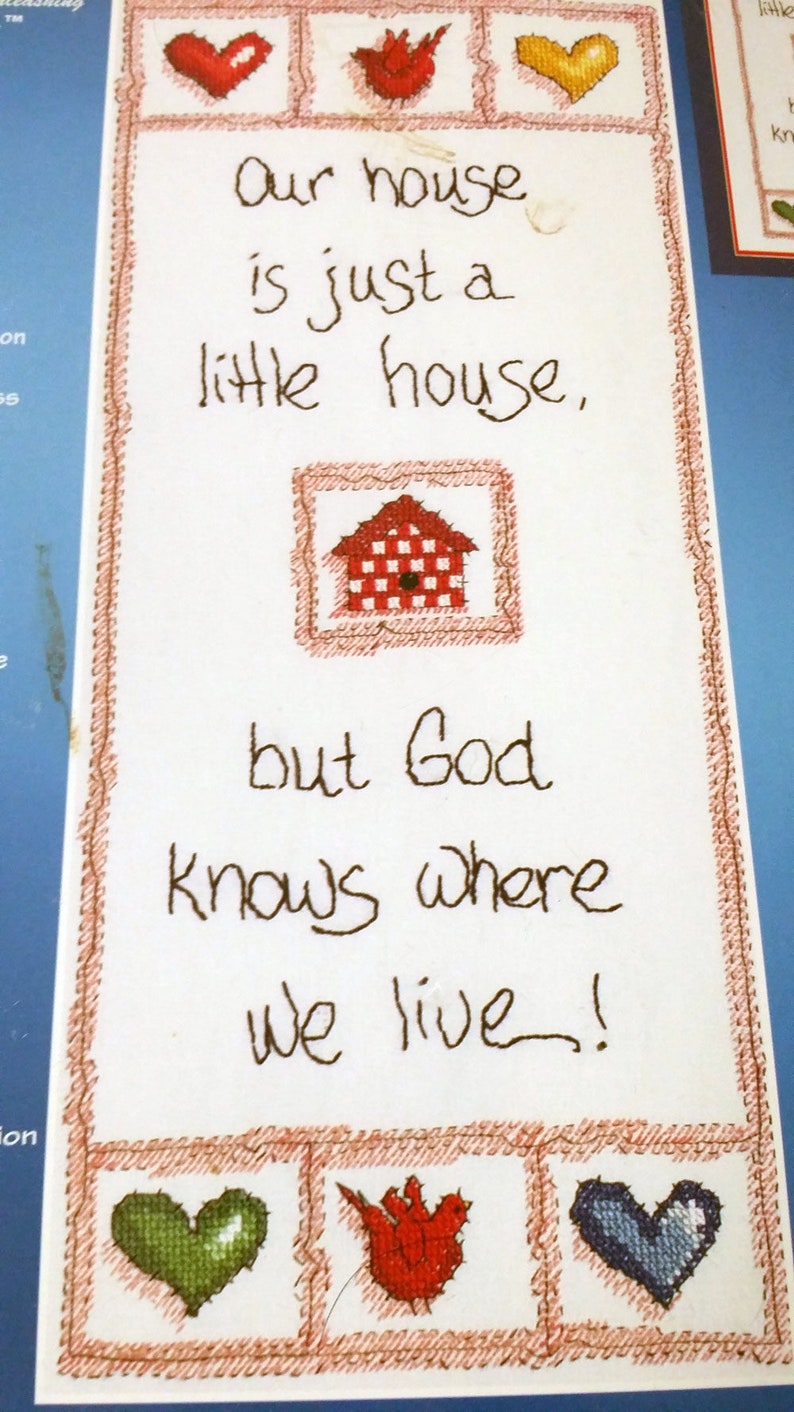 TM
Our house
is just a
little house,
but God
knows where
we live!
little
on
ss
e
ion